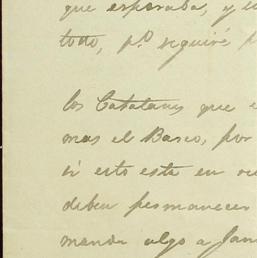 que esperaba, y
todo, p.º seguiré
los Catalanes que
mas el Barco, por
si esto esta en
deben permanecer
mande algo a